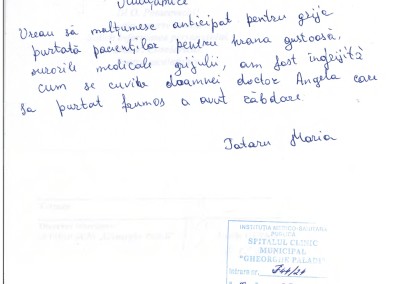 Mulțumire
Vreau să mulțumesc anticipat pentru grija
purtată pacienților pentru hrana gustoasă,
surorile medicale grijulii, am fost îngrijită
cum se cuvine doamnei doctor Angela care
sa purtat frumos a avut căbdare.
Tataru Maria
INSTITUȚIA MEDICO-SANITARĂ
PUBLICĂ
SPITALUL CLINIC
MUNICIPAL
"GHEORGHE PALADI"